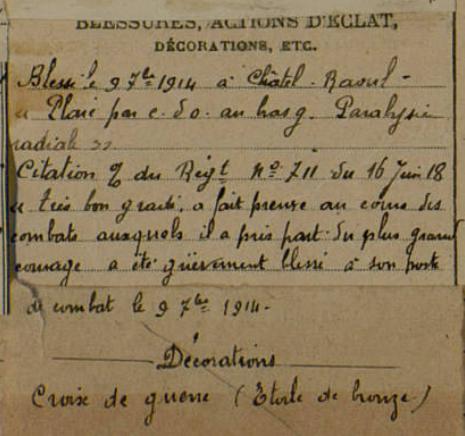 BLESSURES, ACTIONS D'ECLAT,
DÉCORATIONS, ETC.
Blessé le 9 7bre 1914 à Châtel-Raoul -
« Plaie par c. d o. au bras g. Paralysie
radiale »
Citation O/ du Régt No 711 du 16 Juin 18
« très bon gradé, a fait preuve au cours des
combats auxquels il a pris part du plus grand
courage a été grièvement blessé à son poste
de combat le 9 7bre 1914.
Décorations
Croix de guerre (Etoile de bronze)